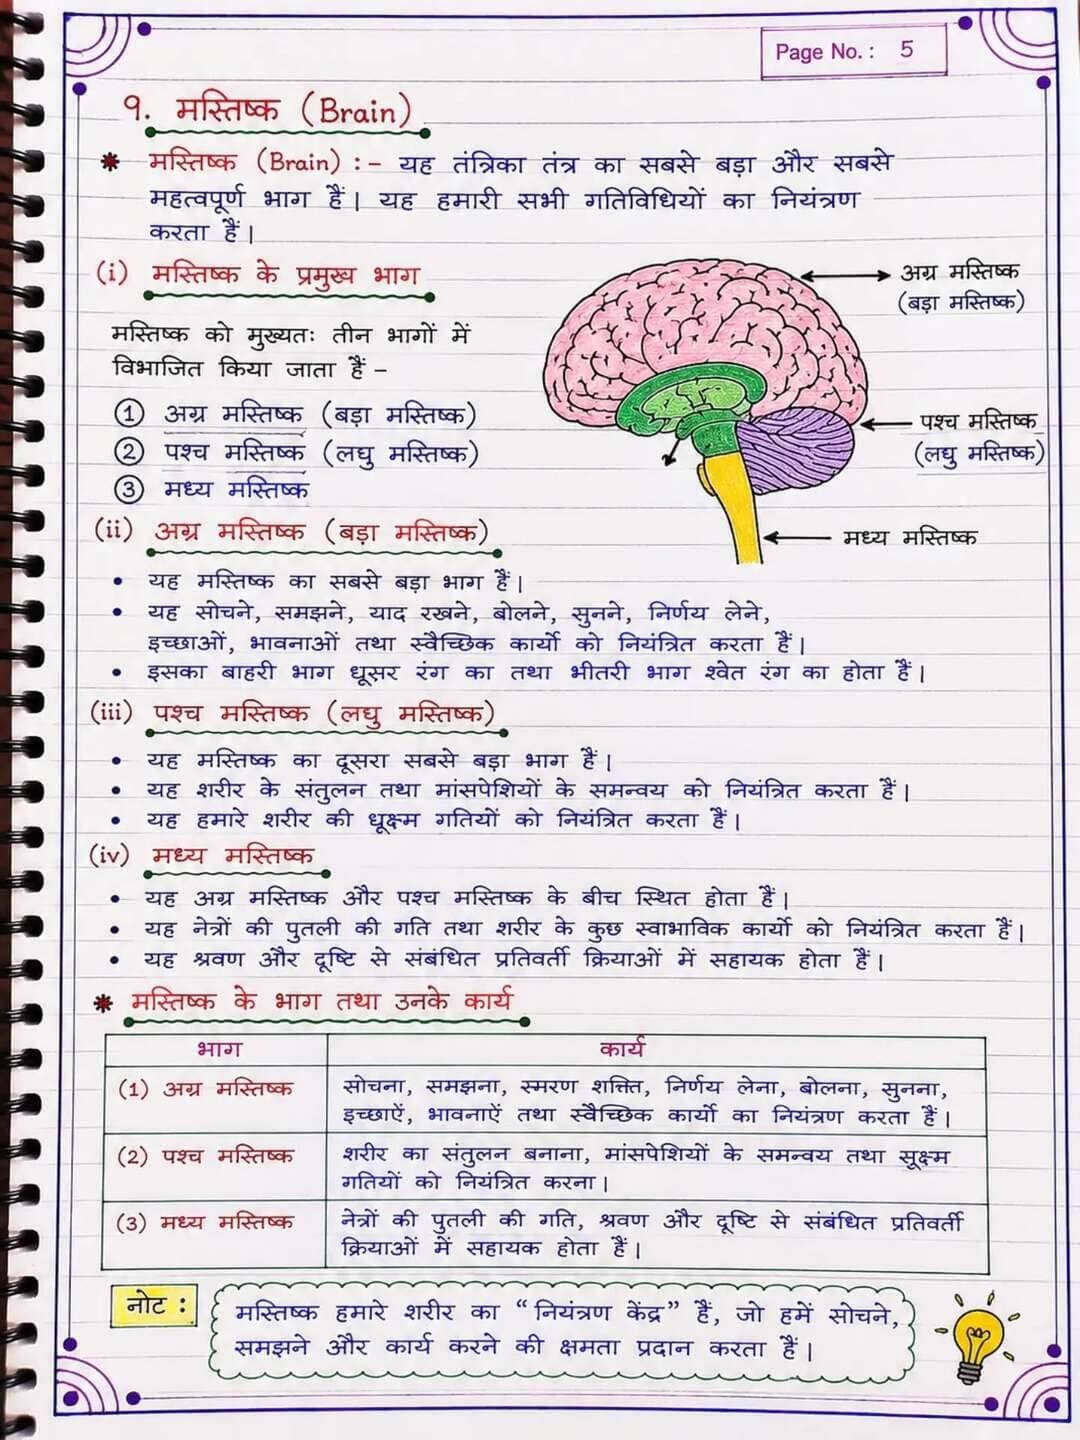 Page No. : 5
9. मस्तिष्क (Brain)
मस्तिष्क (Brain) :- यह तंत्रिका तंत्र का सबसे बड़ा और सबसे
महत्वपूर्ण भाग हैं। यह हमारी सभी गतिविधियों का नियंत्रण
करता हैं।
(i) मस्तिष्क के प्रमुख भाग
मस्तिष्क को मुख्यतः तीन भागों में
विभाजित किया जाता हैं -
① अग्र मस्तिष्क (बड़ा मस्तिष्क)
② पश्च मस्तिष्क (लघु मस्तिष्क)
③ मध्य मस्तिष्क
अग्र मस्तिष्क
(बड़ा मस्तिष्क)
पश्च मस्तिष्क
(लघु मस्तिष्क)
मध्य मस्तिष्क
(ii) अग्र मस्तिष्क (बड़ा मस्तिष्क)
• यह मस्तिष्क का सबसे बड़ा भाग हैं।
• यह सोचने, समझने, याद रखने, बोलने, सुनने, निर्णय लेने,
इच्छाओं, भावनाओं तथा स्वैच्छिक कार्यो को नियंत्रित करता हैं।
• इसका बाहरी भाग धूसर रंग का तथा भीतरी भाग श्वेत रंग का होता हैं।
(iii) पश्च मस्तिष्क (लघु मस्तिष्क)
• यह मस्तिष्क का दूसरा सबसे बड़ा भाग हैं।
• यह शरीर के संतुलन तथा मांसपेशियों के समन्वय को नियंत्रित करता हैं।
• यह हमारे शरीर की धूक्ष्म गतियों को नियंत्रित करता हैं।
(iv) मध्य मस्तिष्क
• यह अग्र मस्तिष्क और पश्च मस्तिष्क के बीच स्थित होता हैं।
• यह नेत्रों की पुतली की गति तथा शरीर के कुछ स्वाभाविक कार्यो को नियंत्रित करता हैं।
• यह श्रवण और दृष्टि से संबंधित प्रतिवर्ती क्रियाओं में सहायक होता हैं।
मस्तिष्क के भाग तथा उनके कार्य
भाग कार्य
(1) अग्र मस्तिष्क सोचना, समझना, स्मरण शक्ति, निर्णय लेना, बोलना, सुनना,
इच्छाऐं, भावनाऐं तथा स्वैच्छिक कार्यो का नियंत्रण करता हैं।
(2) पश्च मस्तिष्क शरीर का संतुलन बनाना, मांसपेशियों के समन्वय तथा सूक्ष्म
गतियों को नियंत्रित करना।
(3) मध्य मस्तिष्क नेत्रों की पुतली की गति, श्रवण और दृष्टि से संबंधित प्रतिवर्ती
क्रियाओं में सहायक होता हैं।
नोट :
मस्तिष्क हमारे शरीर का "नियंत्रण केंद्र" हैं, जो हमें सोचने,
समझने और कार्य करने की क्षमता प्रदान करता हैं।